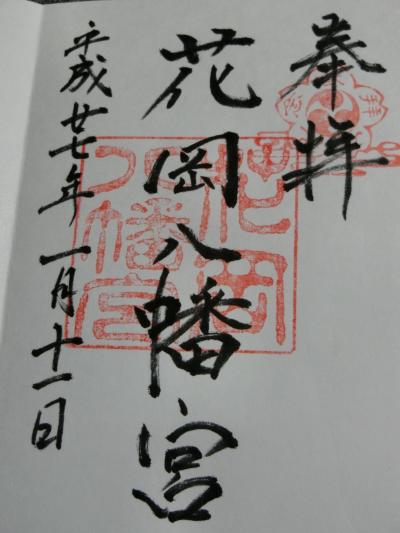 奉拝
花岡八幡宮
平成廿七年一月十一日
花岡
八幡宮